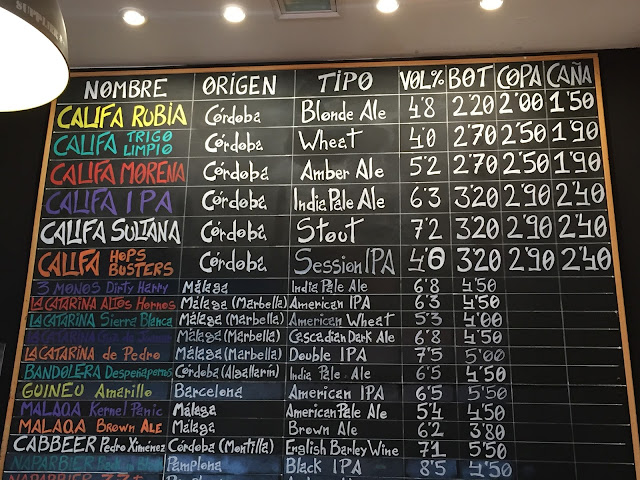 NOMBRE ORIGEN TIPO VOL% BOT COPA CAÑA
CALIFA RUBIA Córdoba Blonde Ale 4'8 2'20 2'00 1'50
CALIFA TRIGO LIMPIO Córdoba Wheat 4'0 2'70 2'50 1'90
CALIFA MORENA Córdoba Amber Ale 5'2 2'70 2'50 1'90
CALIFA IPA Córdoba India Pale Ale 6'3 3'20 2'90 2'40
CALIFA SULTANA Córdoba Stout 7'2 3'20 2'90 2'40
CALIFA HOPS BUSTERS Córdoba Session IPA 4'0 3'20 2'90 2'40
3 MONOS Dirty Harry Málaga India Pale Ale 6'8 4'50
LA CATARINA Altos Hornos Málaga (Marbella) American IPA 6'3 4'50
LA CATARINA Sierra Blanca Málaga (Marbella) American Wheat 5'3 4'00
LA CATARINA Málaga (Marbella) Cascadian Dark Ale 6'8 4'50
LA CATARINA de Pedro Málaga (Marbella) Double IPA 7'5 5'00
BANDOLERA Despeñaperros Córdoba (Algallarín) India Pale Ale 6'5 4'50
GUINEU Amarillo Barcelona American IPA 6'5 5'50
MALAQA Kernel Panic Málaga American Pale Ale 5'4 4'50
MALAQA Brown Ale Málaga Brown Ale 6'2 3'80
CABBEER Pedro Ximénez Córdoba (Montilla) English Barley Wine 7'1 5'50
NAPARBIER Pamplona Black IPA 8'5 4'50
NAPARBIER